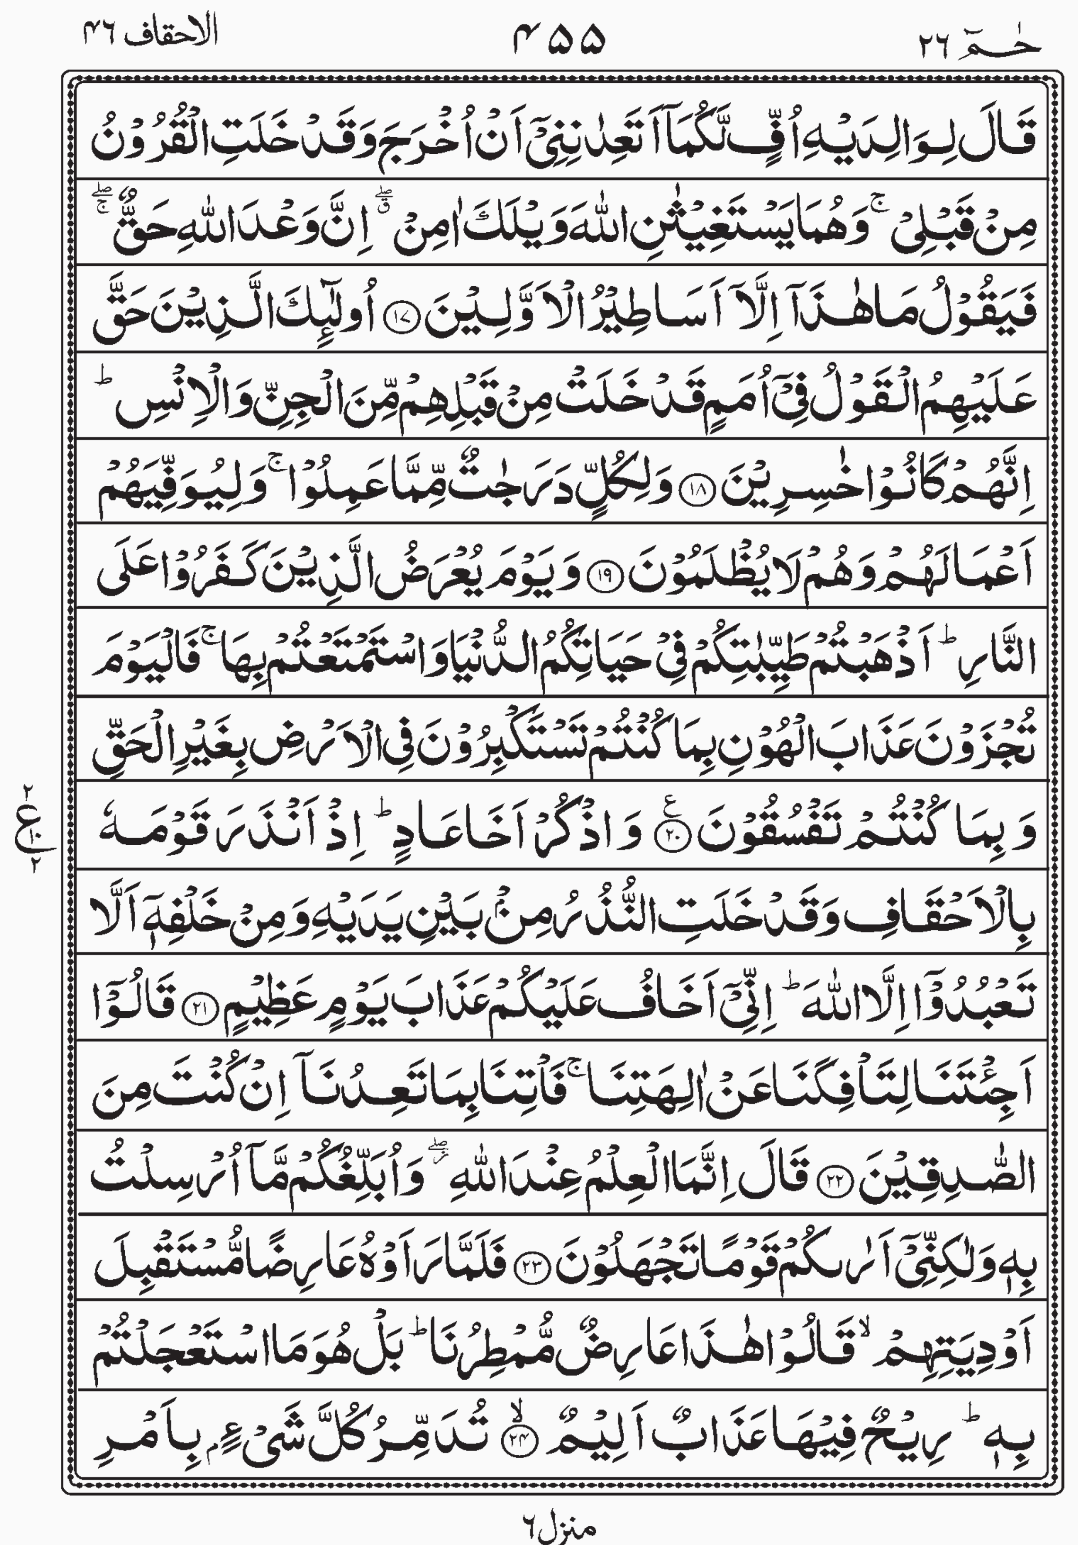 حٰمٓ ٢٦ ۴۵۵ الاحقاف ۴۶
قَالَ لِوَالِدَيْهِ اُفٍّ لَّكُمَاۤ اَتَعِدٰنِنِيْۤ اَنْ اُخْرَجَ وَقَدْ خَلَتِ الْقُرُوْنُ
مِنْ قَبْلِيْ ۚ وَهُمَا يَسْتَغِيْثٰنِ اللّٰهَ وَيْلَكَ اٰمِنْ ۖۗ اِنَّ وَعْدَ اللّٰهِ حَقٌّ ۖۚ
فَيَقُوْلُ مَا هٰذَاۤ اِلَّاۤ اَسَاطِيْرُ الْاَوَّلِيْنَ ﴿١٧﴾ اُولٰٓئِكَ الَّذِيْنَ حَقَّ
عَلَيْهِمُ الْقَوْلُ فِيْۤ اُمَمٍ قَدْ خَلَتْ مِنْ قَبْلِهِمْ مِّنَ الْجِنِّ وَالْاِنْسِ ؕ
اِنَّهُمْ كَانُوْا خٰسِرِيْنَ ﴿١٨﴾ وَلِكُلٍّ دَرَجٰتٌ مِّمَّا عَمِلُوْا ۚ وَلِيُوَفِّيَهُمْ
اَعْمَالَهُمْ وَهُمْ لَا يُظْلَمُوْنَ ﴿١٩﴾ وَيَوْمَ يُعْرَضُ الَّذِيْنَ كَفَرُوْا عَلَى
النَّارِ ؕ اَذْهَبْتُمْ طَيِّبٰتِكُمْ فِيْ حَيَاتِكُمُ الدُّنْيَا وَاسْتَمْتَعْتُمْ بِهَا ۚ فَالْيَوْمَ
تُجْزَوْنَ عَذَابَ الْهُوْنِ بِمَا كُنْتُمْ تَسْتَكْبِرُوْنَ فِي الْاَرْضِ بِغَيْرِ الْحَقِّ
وَبِمَا كُنْتُمْ تَفْسُقُوْنَ ﴿٢٠﴾ ع وَاذْكُرْ اَخَا عَادٍ ؕ اِذْ اَنْذَرَ قَوْمَهٗ
٢ ع ١٠ ٢
بِالْاَحْقَافِ وَقَدْ خَلَتِ النُّذُرُ مِنْۢ بَيْنِ يَدَيْهِ وَمِنْ خَلْفِهٖۤ اَلَّا
تَعْبُدُوْۤا اِلَّا اللّٰهَ ؕ اِنِّيْۤ اَخَافُ عَلَيْكُمْ عَذَابَ يَوْمٍ عَظِيْمٍ ﴿٢١﴾ قَالُوْۤا
اَجِئْتَنَا لِتَاْفِكَنَا عَنْ اٰلِهَتِنَا ۚ فَاْتِنَا بِمَا تَعِدُنَاۤ اِنْ كُنْتَ مِنَ
الصّٰدِقِيْنَ ﴿٢٢﴾ قَالَ اِنَّمَا الْعِلْمُ عِنْدَ اللّٰهِ ۖؗ وَاُبَلِّغُكُمْ مَّاۤ اُرْسِلْتُ
بِهٖ وَلٰكِنِّيْۤ اَرٰىكُمْ قَوْمًا تَجْهَلُوْنَ ﴿٢٣﴾ فَلَمَّا رَاَوْهُ عَارِضًا مُّسْتَقْبِلَ
اَوْدِيَتِهِمْ ۙ قَالُوْا هٰذَا عَارِضٌ مُّمْطِرُنَا ؕ بَلْ هُوَ مَا اسْتَعْجَلْتُمْ
بِهٖ ؕ رِيْحٌ فِيْهَا عَذَابٌ اَلِيْمٌ ﴿٢٤﴾ ۙ تُدَمِّرُ كُلَّ شَيْءٍۭ بِاَمْرِ
منزل ٦